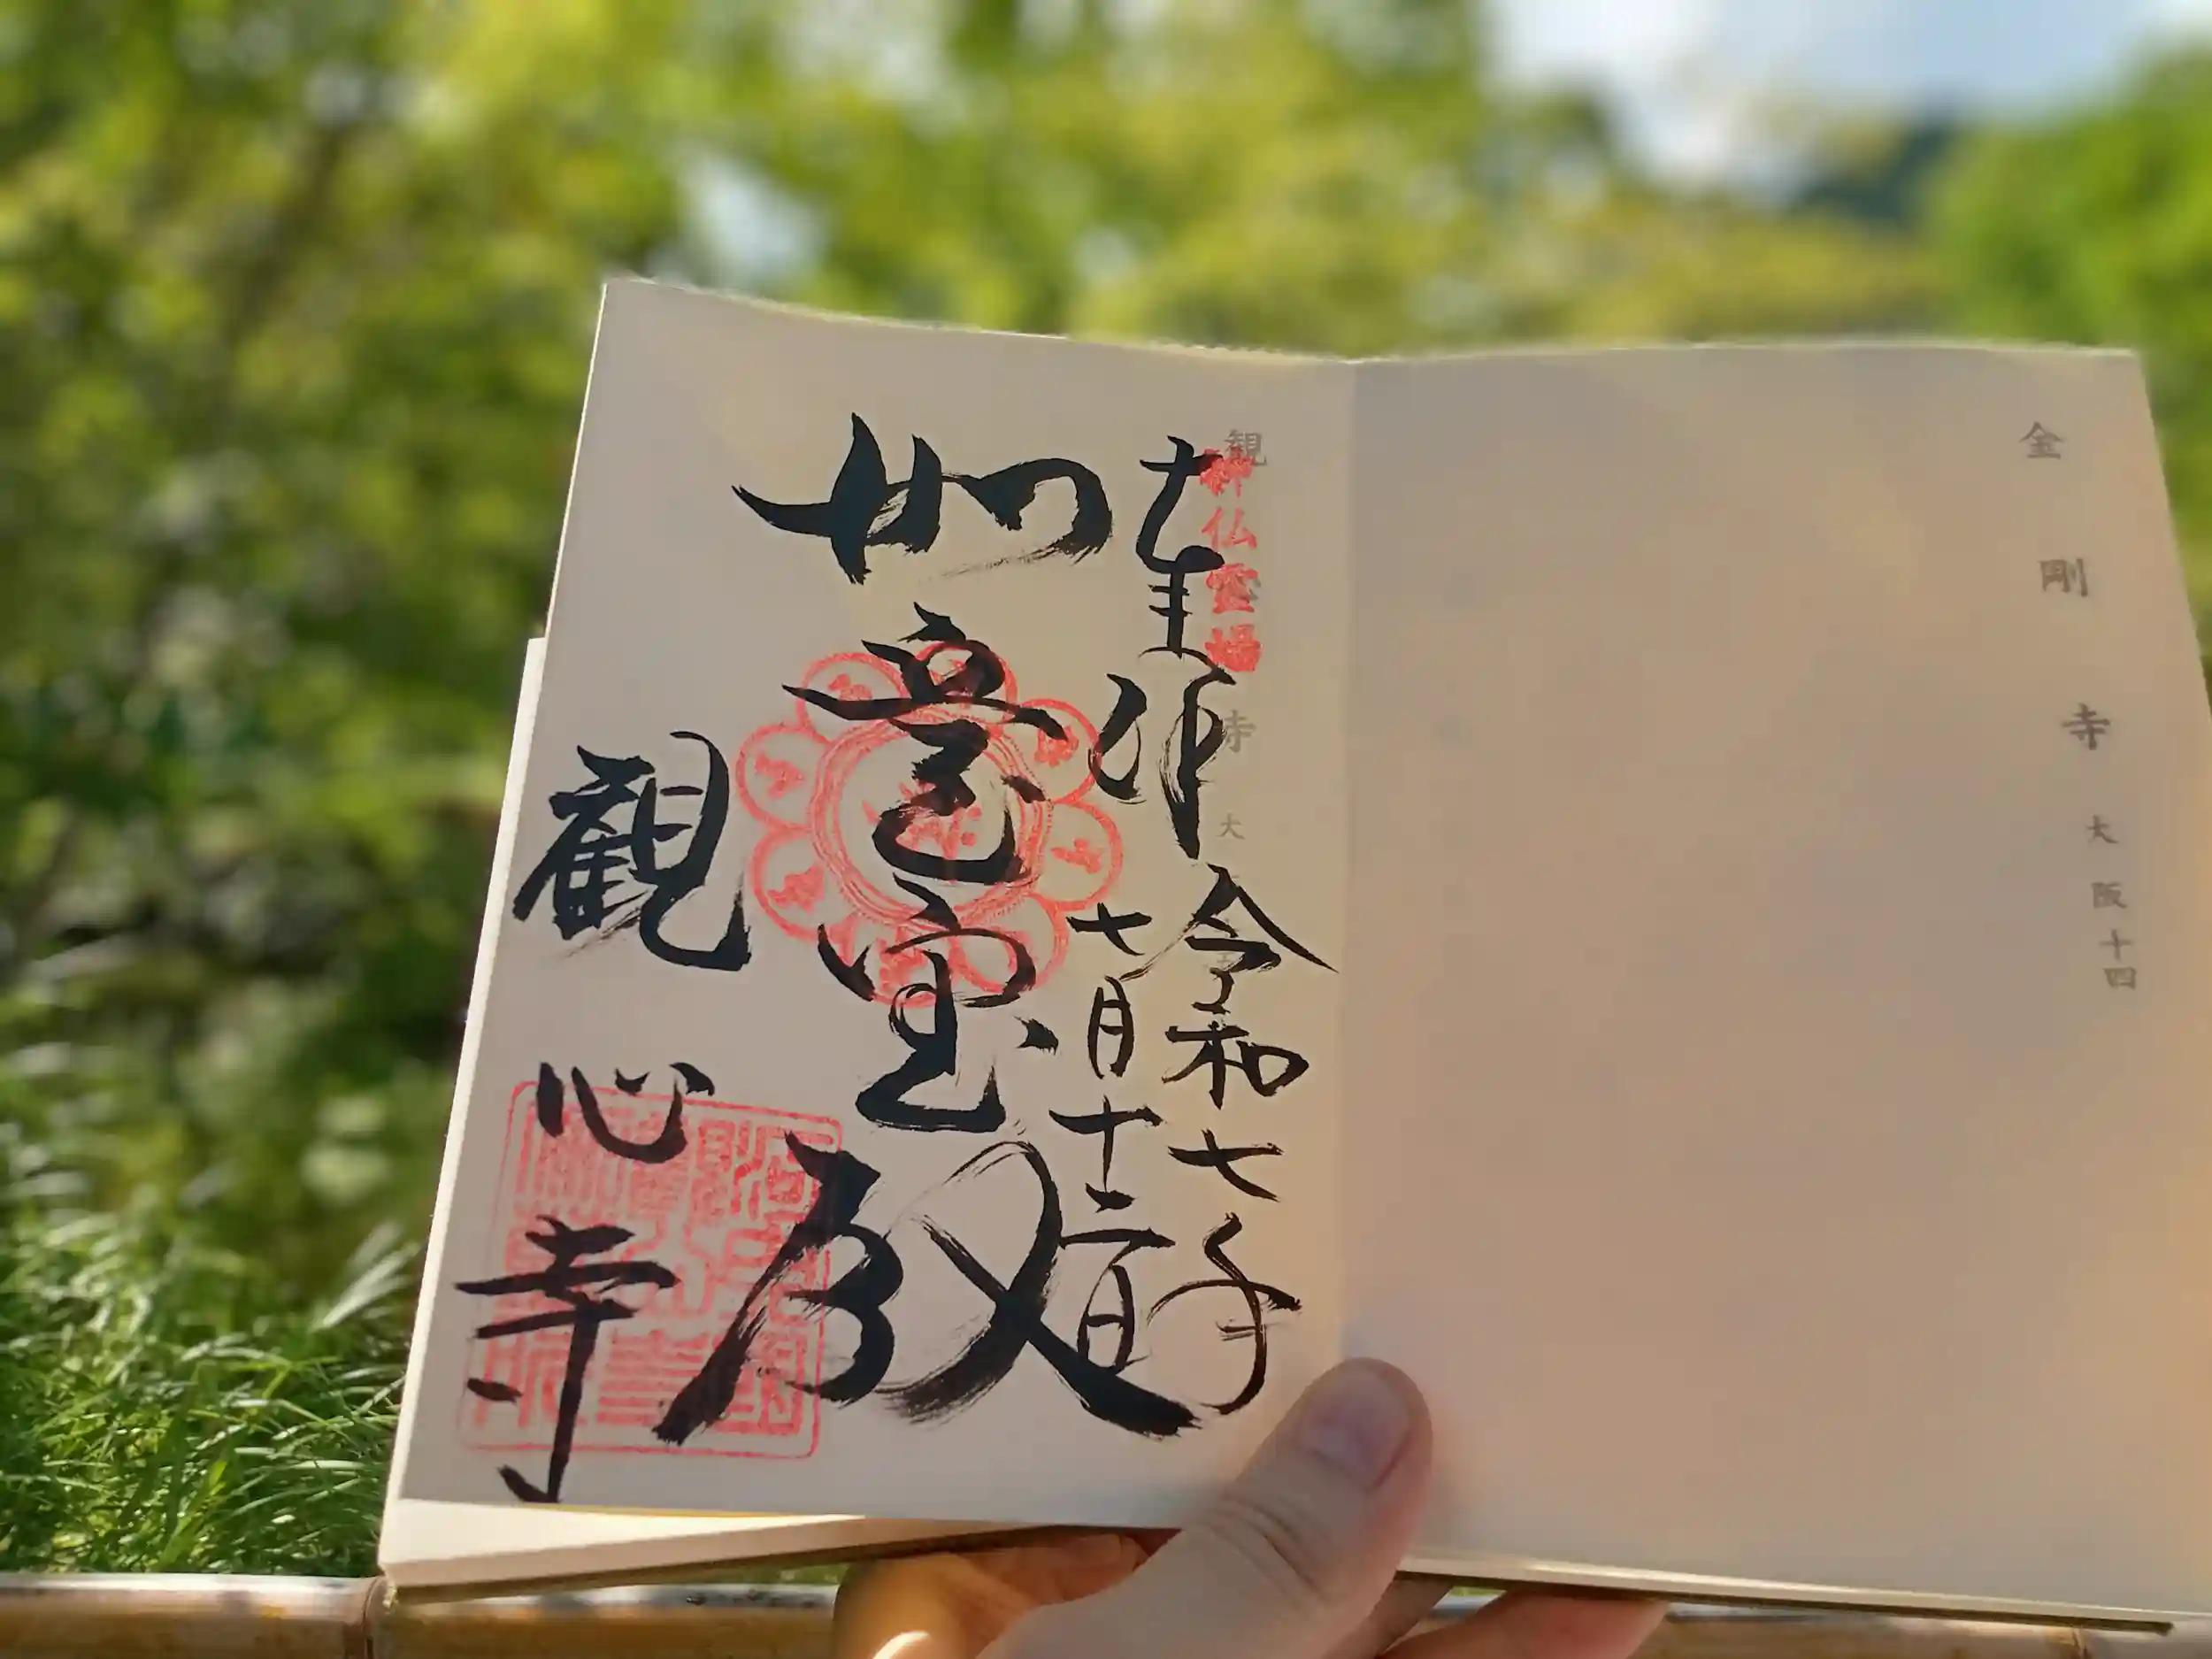 金剛寺 大阪十四
観 寺 大
神仏霊場
奉拝
令和七年
七月十二日
如意宝殿
観心寺